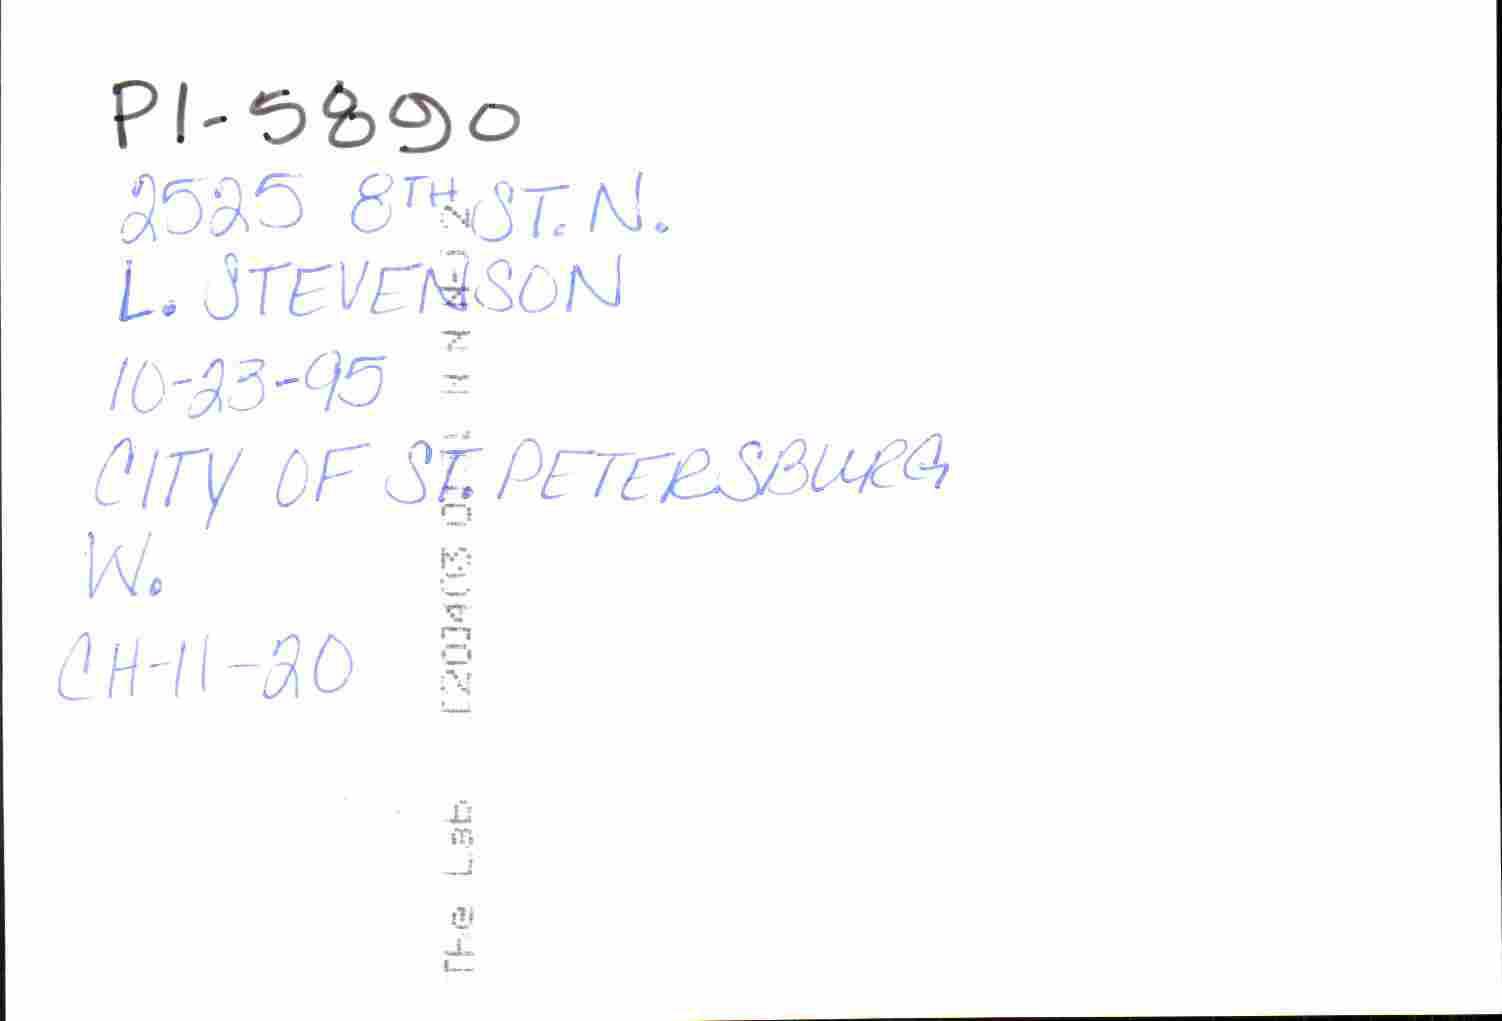 PI-5890
2525 8TH ST. N.
L. STEVENSON
10-23-95
CITY OF ST. PETERSBURG
W.
CH-11-20
The Lab